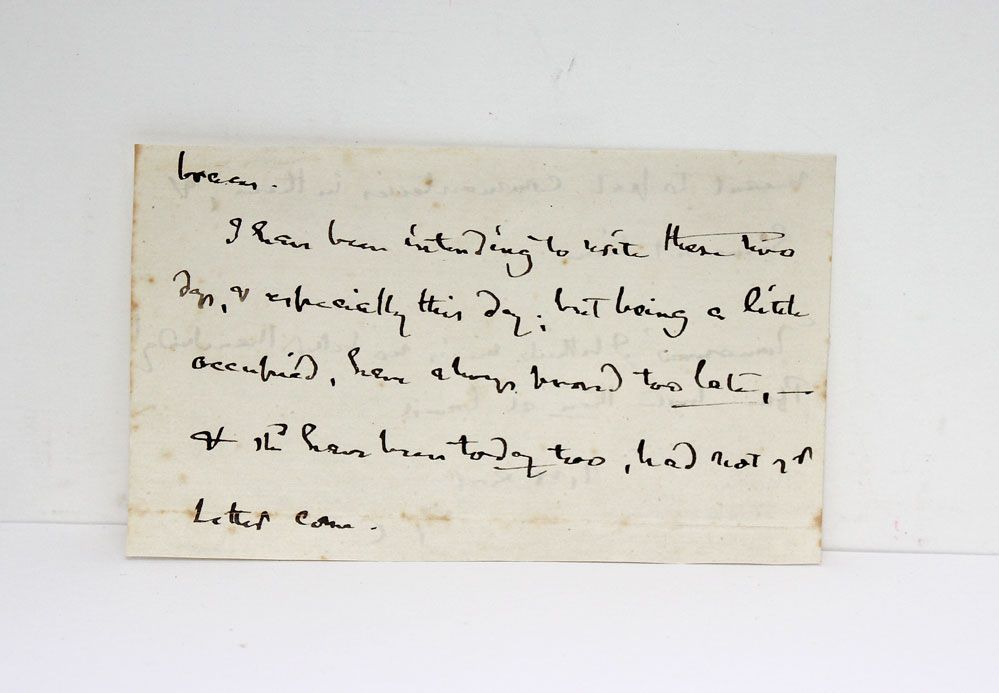 I have been intending to write these two
days, & especially this day; but being a little
occupied, have always proved too late, —
& shd have been today too, had not yr
letter come.